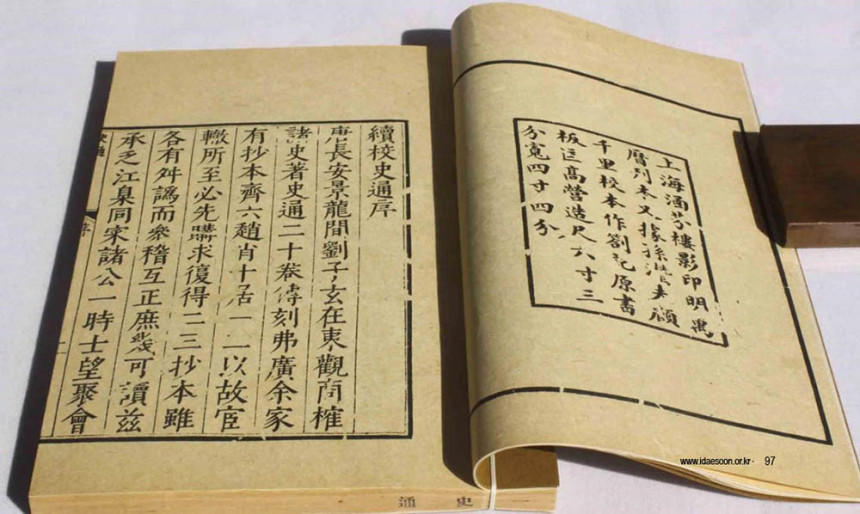 上海涵芬樓影印明萬
曆刋本又據孫潛夫顧
千里校本作劄記原書
板匡高營造尺六寸三
分寬四寸四分
續校史通序
唐長安景龍間劉子玄在東觀商榷
諸史著史通二十卷傳刻弗廣余家
有抄本齊六趙肖十居一二以故宦
轍所至必先購求復得二三抄本雖
各有舛譌而參稽互正庶幾可讀茲
承乏江臬同寀諸公一時士望聚會
序
通 史 一
www.idaesoon.or.kr · 97